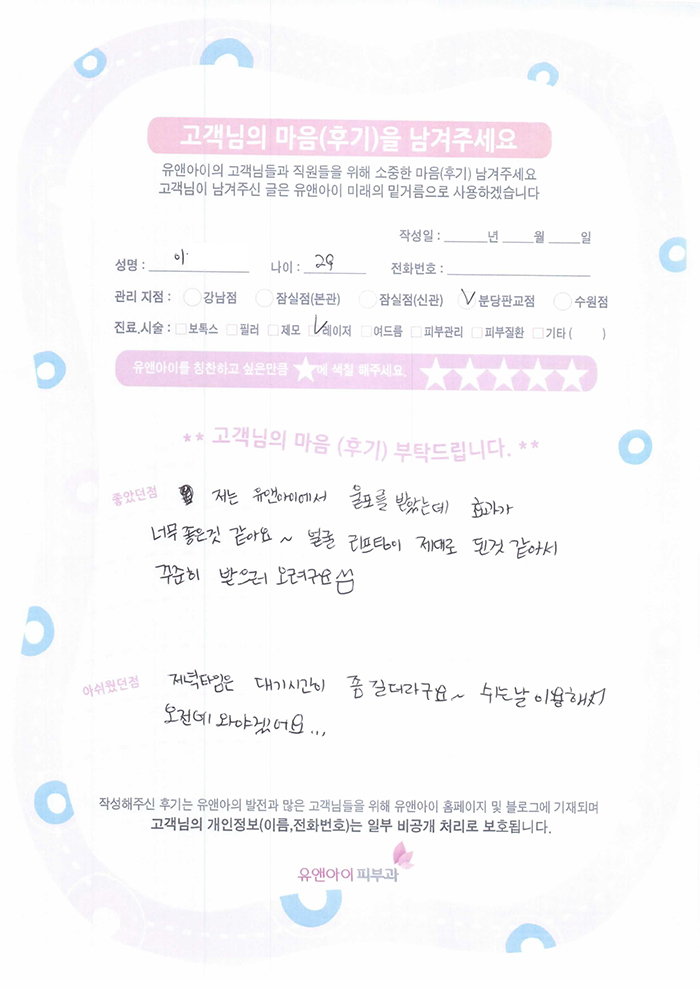 고객님의 마음(후기)을 남겨주세요
유앤아이의 고객님들과 직원들을 위해 소중한 마음(후기) 남겨주세요
고객님이 남겨주신 글은 유앤아이 미래의 밑거름으로 사용하겠습니다
작성일 : ______년 ____월 ____일
성명 : 이 나이 : 29 전화번호 :
관리 지점 : 강남점 잠실점(본관) 잠실점(신관) V 분당판교점 수원점
진료,시술 : 보톡스 필러 제모 V 레이저 여드름 피부관리 피부질환 기타 ( )
유앤아이를 칭찬하고 싶은만큼 ★에 색칠 해주세요. ★★★★★
** 고객님의 마음 (후기) 부탁드립니다. **
좋았던점 저는 유앤아이에서 울포를 받았는데 효과가
너무 좋은것 같아요~ 얼굴 리프팅이 제대로 된것 같아서
꾸준히 받으러 오려구요
아쉬웠던점 저녁타임은 대기시간이 좀 길더라구요~ 쉬는날 이용해서
오전에 와야겠어요...
작성해주신 후기는 유앤아의 발전과 많은 고객님들을 위해 유앤아이 홈페이지 및 블로그에 기재되며
고객님의 개인정보(이름,전화번호)는 일부 비공개 처리로 보호됩니다.
유앤아이 피부과